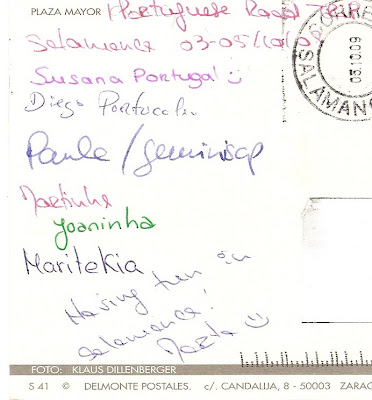 PLAZA MAYOR
Portuguese Road Trip
Salamanca 03-05/10/09
Susana Portugal
Diogo Portucale
Paula / geminiscp
Martinha
Joaninha
Maritekia
Having fun in
Salamanca!
Marta
SALAMANCA
05.10.09
FOTO: KLAUS DILLENBERGER
S 41 © DELMONTE POSTALES. c/. CANDALIJA, 8 - 50003 ZARAG